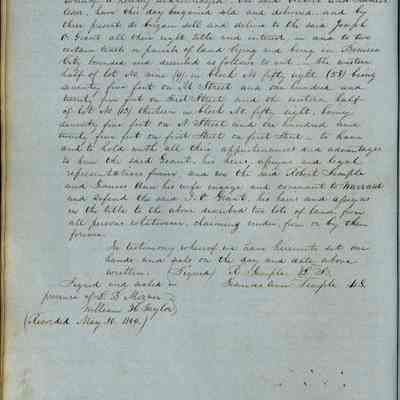 Ann, have this day bargained sold and delivered and by
these presents do bargain sell and deliver to the said Joseph
P. Grant all their right title and interest in and to two
certain tracts or parcels of land lying and being in Benicia
City bounded and described as follows to wit, the western
half of lot No. nine (9) in block No. fifty eight (58) being
seventy five feet on M Street and one hundred and
twenty five feet on First Street and the western half
of lot No (12) thirteen in block No. fifty eight, being
seventy five feet on N Street and one hundred and
twenty five feet on first Street, to have
and to hold with all their appurtenances and advantages
to him the said Grant, his heirs, assigns and legal
representatives forever, and we the said Robert Semple
and Frances Ann his wife engage and covenant to warrant
and defend the said J. P. Grant, his heirs and assigns
in the title to the above described two lots of land, from
all persons whatsoever, claiming under, from or by them
forever.
In testimony whereof we have hereunto set our
hands and seals on the day and date above
written. (Signed) R. Semple L.S.
Signed and sealed in Frances Ann Semple L.S.
presence of
William H. Taylor
(Recorded May 10.